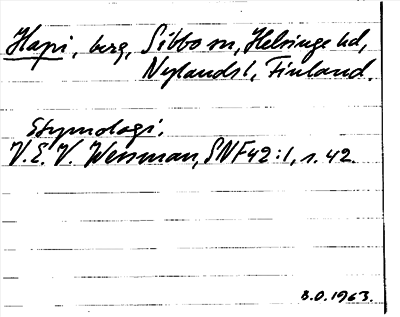 Hapi, berg, Sibbo sn, Helsinge hd,
Nylands l, Finland.
Etymologi.
V. E. V. Wessman, SNF 42:1, s. 42.
B.O. 1963.